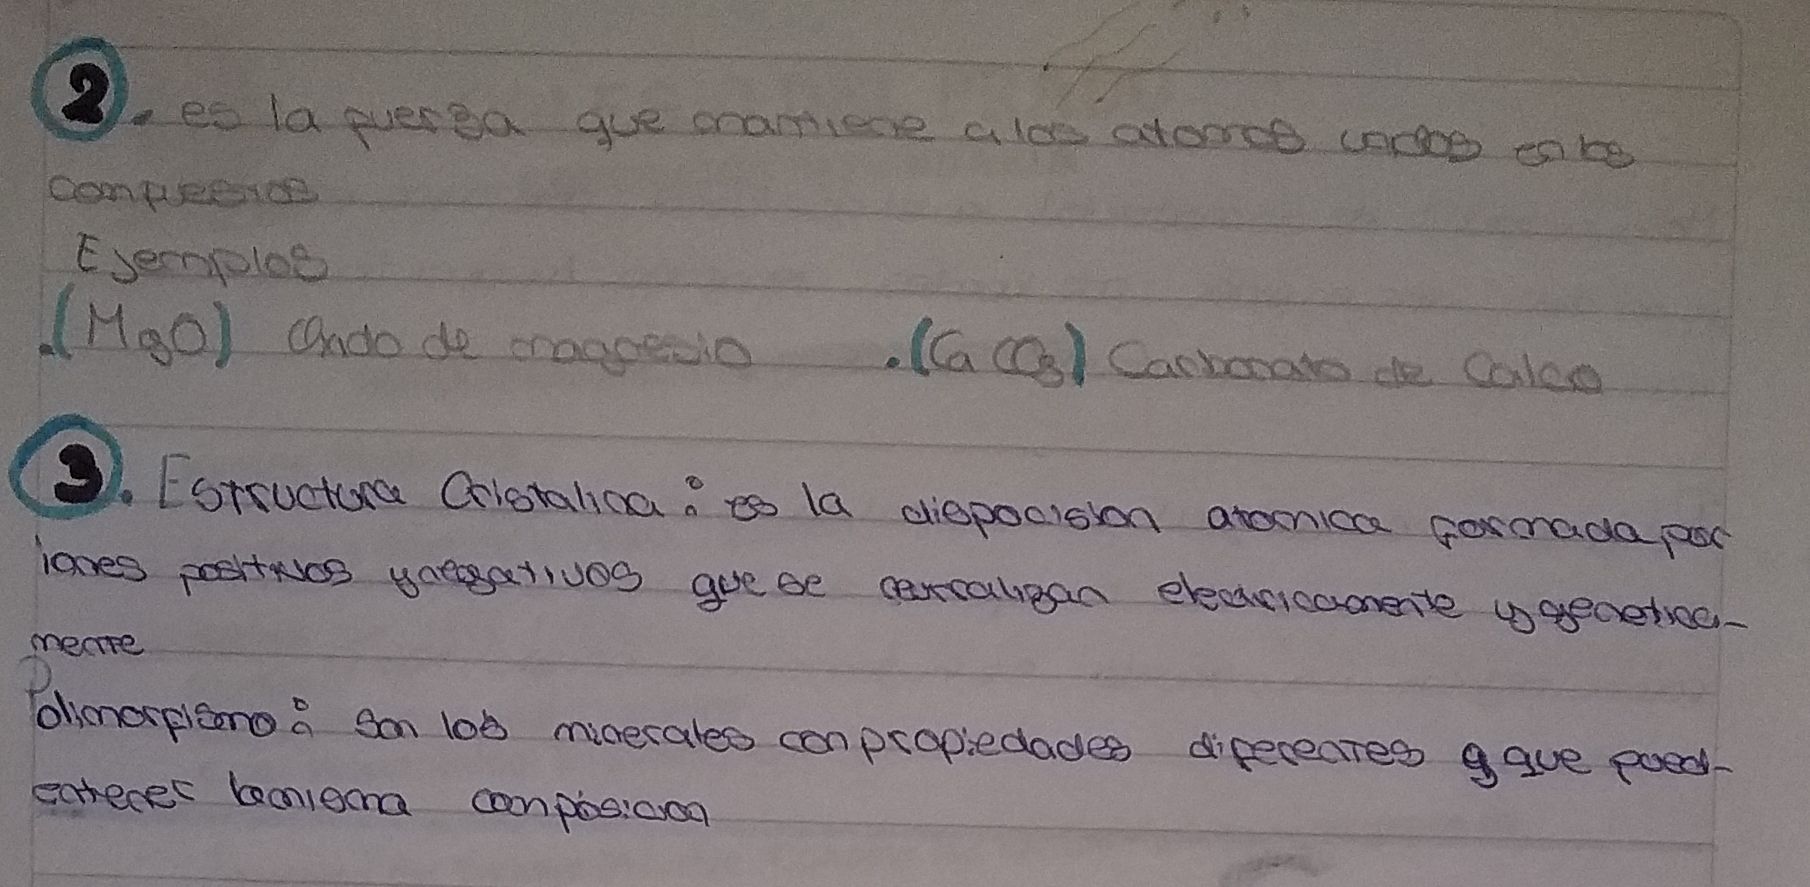 2. es la fuerza que mantiene a los atomos unidos en los
compuestos
Ejemplos
.(MgO) Oxido de magnesio .(CaCO3) Carbonato de Calcio
3. Estructura Cristalica: es la dispocision atomica formada por
iones positivos y negativos que se electricamente y geometrica-
mente
Polimorfismo: son los minerales con propiedades diferentes y que pued-
en tener la misma composicion